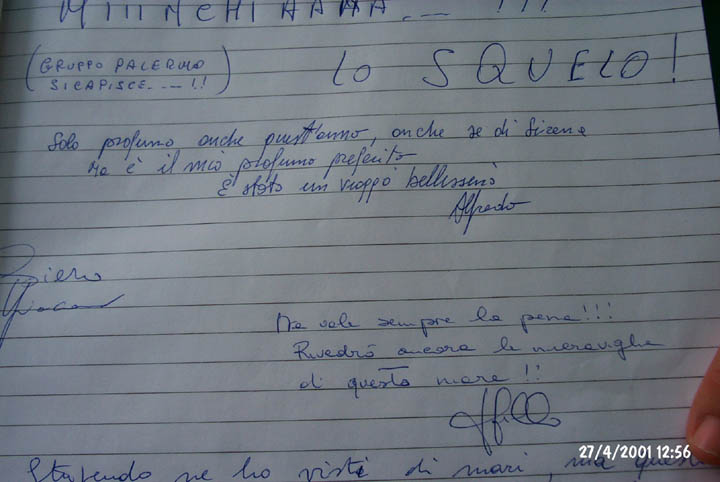 MIIINCHIAAAA... !!!
(GRUPPO PALERMO
SI CAPISCE....!!)
LO SQUELO!
Solo profumo anche quest'anno, anche se di Sirene
ma è il mio profumo preferito
È stato un viaggio bellissimo
Alfredo
Piero
Ne vale sempre la pena!!!
Rivedrò ancora le meraviglie
di questo mare!!
Stupendo ne ho visti di mari, ma questo
27/4/2001 12:56